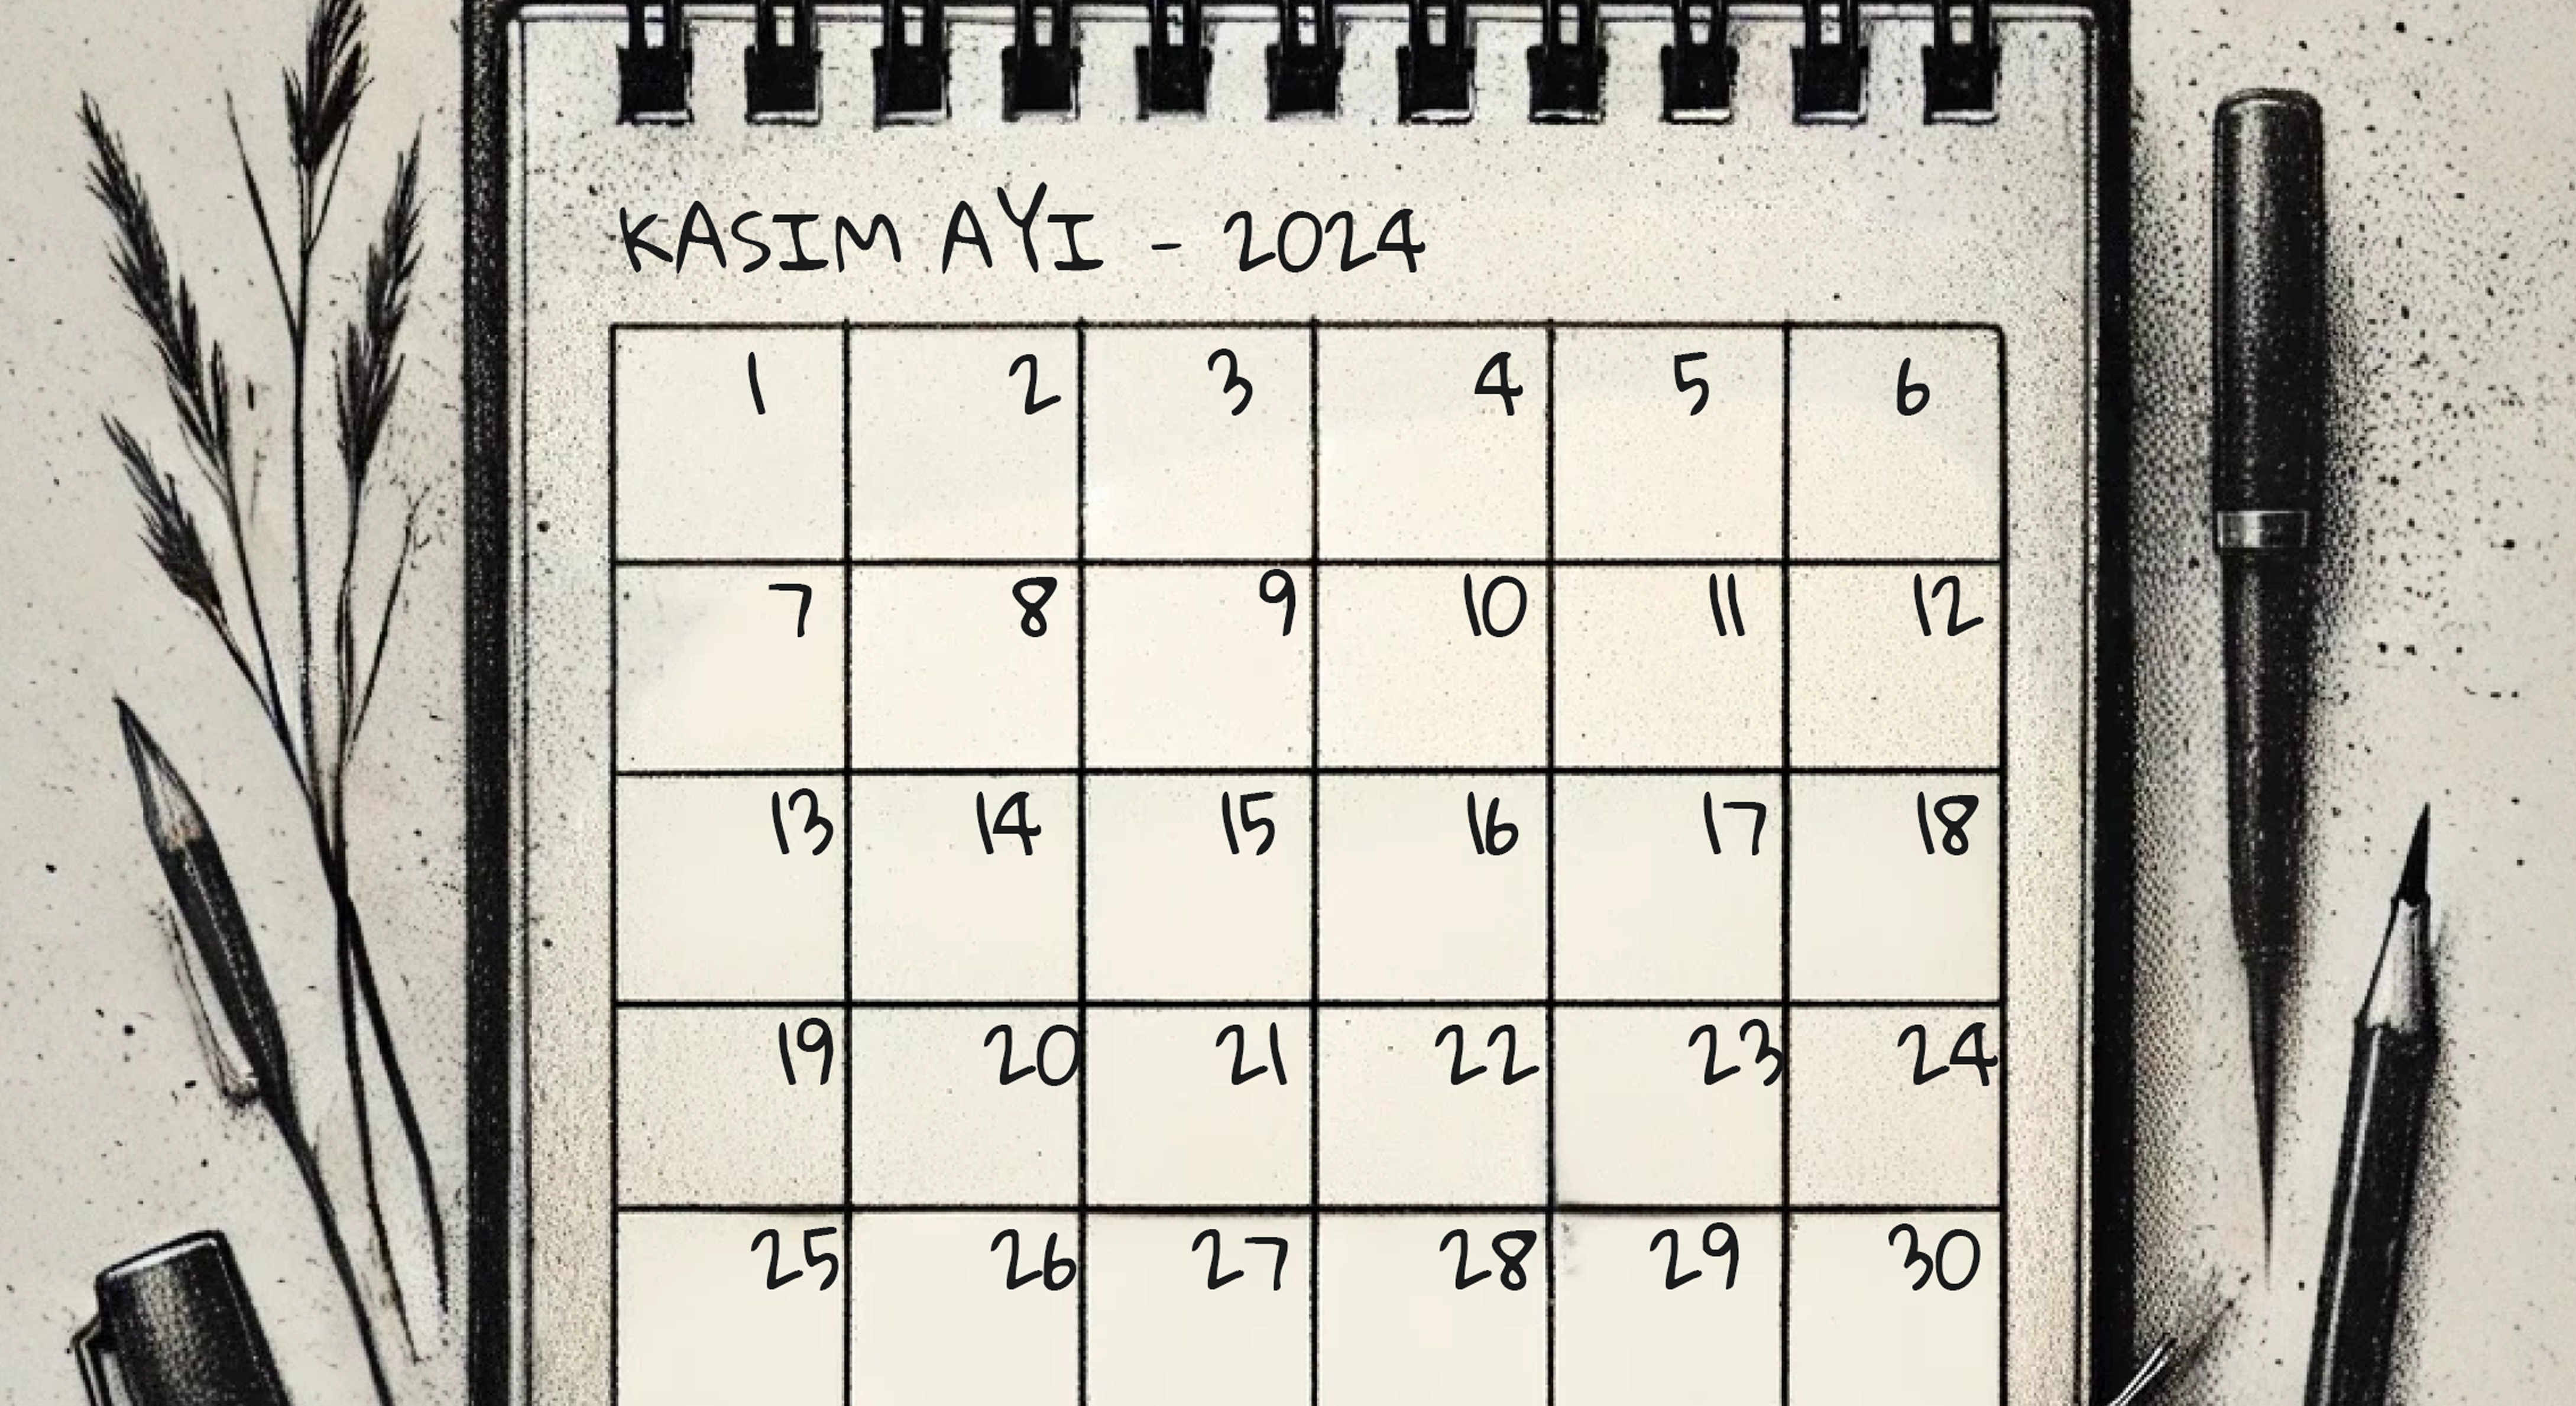 KASIM AYI - 2024
1 2 3 4 5 6
7 8 9 10 11 12
13 14 15 16 17 18
19 20 21 22 23 24
25 26 27 28 29 30